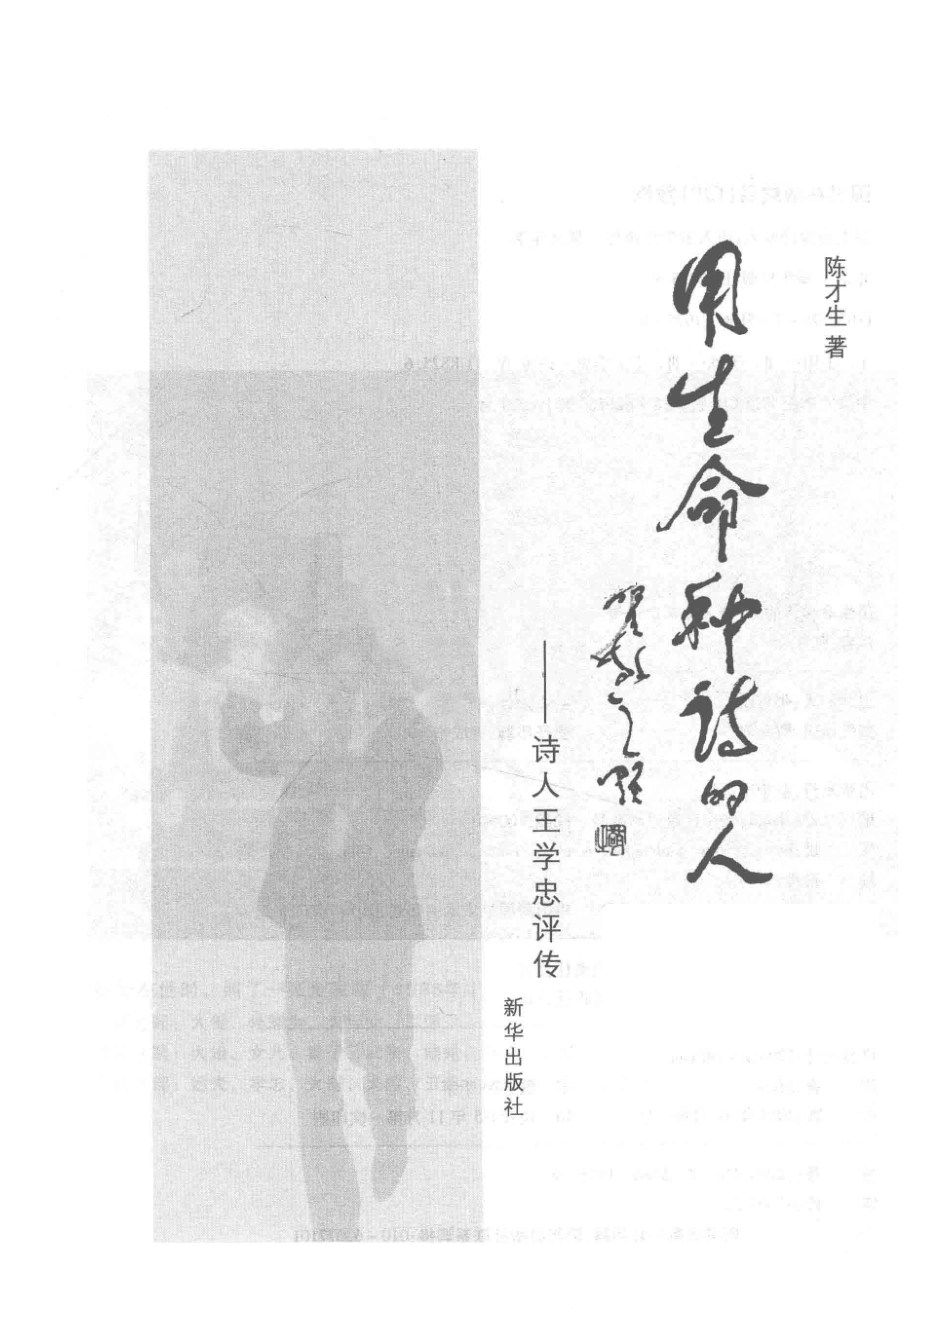 陈才生著
用生命种诗的人
贺敬之题
——诗人王学忠评传
新华出版社